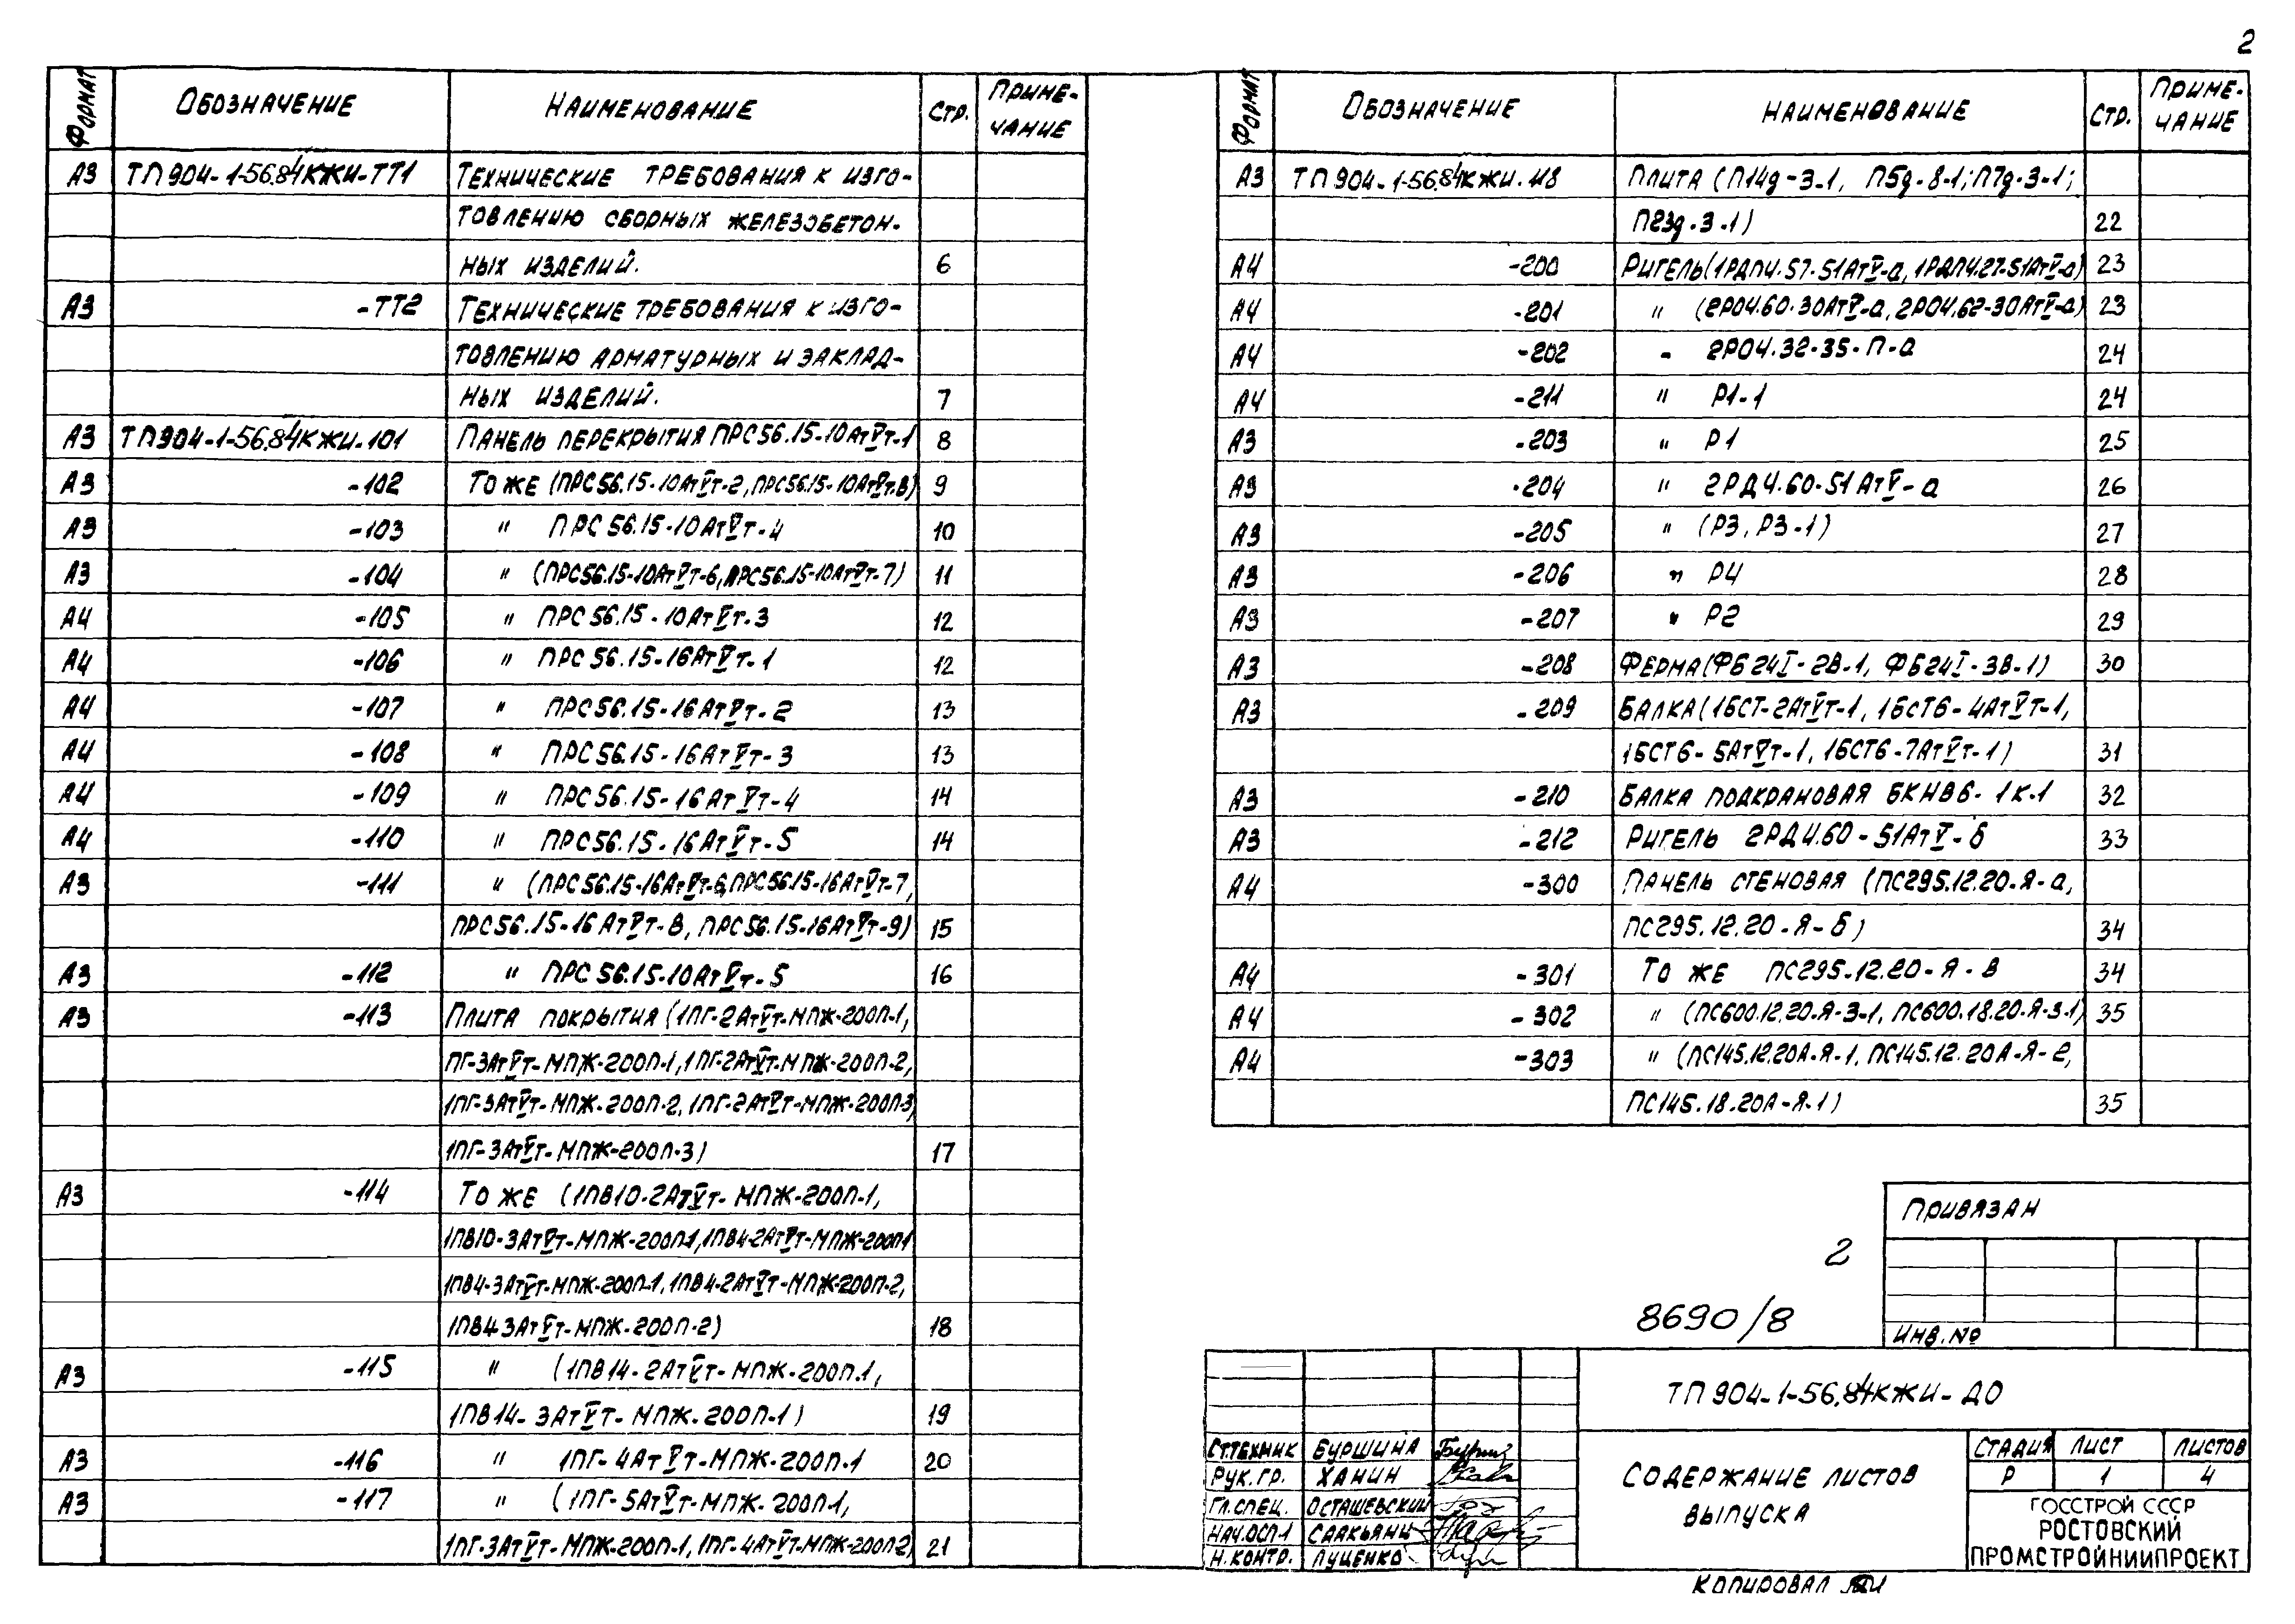 2
ФОРМАТ ОБОЗНАЧЕНИЕ НАИМЕНОВАНИЕ СТР. ПРИМЕ-
ЧАНИЕ
А3 ТП904-1-56.84КЖИ-ТТ1 ТЕХНИЧЕСКИЕ ТРЕБОВАНИЯ К ИЗГО-
ТОВЛЕНИЮ СБОРНЫХ ЖЕЛЕЗОБЕТОН-
НЫХ ИЗДЕЛИЙ. 6
А3 -ТТ2 ТЕХНИЧЕСКИЕ ТРЕБОВАНИЯ К ИЗГО-
ТОВЛЕНИЮ АРМАТУРНЫХ И ЗАКЛАД-
НЫХ ИЗДЕЛИЙ. 7
А3 ТП904-1-56.84КЖИ-101 ПАНЕЛЬ ПЕРЕКРЫТИЯ ПРС56.15-10АтVт-1 8
А3 -102 ТО ЖЕ (ПРС56.15-10АтVт-2, ПРС56.15-10АтVт-8) 9
А3 -103 " ПРС56.15-10АтVт-4 10
А3 -104 " (ПРС56.15-10АтVт-6, ПРС56.15-10АтVт-7) 11
А4 -105 " ПРС56.15-10АтVт-3 12
А4 -106 " ПРС56.15-16АтVт-1 12
А4 -107 " ПРС56.15-16АтVт-2 13
А4 -108 " ПРС56.15-16АтVт-3 13
А4 -109 " ПРС56.15-16АтVт-4 14
А4 -110 " ПРС56.15-16АтVт-5 14
А3 -111 " (ПРС56.15-16АтVт-6, ПРС56.15-16АтVт-7,
ПРС56.15-16АтVт-8, ПРС56.15-16АтVт-9) 15
А3 -112 " ПРС56.15-10АтVт-5 16
А3 -113 ПЛИТА ПОКРЫТИЯ (1ПГ-2АтVт-МПЖ-200П-1,
ПГ-3АтVт-МПЖ-200П-1, 1ПГ-2АтVт-МПЖ-200П-2,
1ПГ-3АтVт-МПЖ-200П-2, 1ПГ-2АтVт-МПЖ-200П-3,
1ПГ-3АтVт-МПЖ-200П-3) 17
А3 -114 ТО ЖЕ (1ПВ10-2АтVт-МПЖ-200П-1,
1ПВ10-3АтVт-МПЖ-200П-1, 1ПВ4-2АтVт-МПЖ-200П-1
1ПВ4-3АтVт-МПЖ-200П-1, 1ПВ4-2АтVт-МПЖ-200П-2,
1ПВ4 3АтVт-МПЖ-200П-2) 18
А3 -115 " (1ПВ14-2АтVт-МПЖ-200П-1,
1ПВ14-3АтVт-МПЖ-200П-1) 19
А3 -116 " 1ПГ-4АтVт-МПЖ-200П-1 20
А3 -117 " (1ПГ-5АтVт-МПЖ-200П-1,
1ПГ-3АтVт-МПЖ-200П-1, 1ПГ-4АтVт-МПЖ-200П-2) 21
ФОРМАТ ОБОЗНАЧЕНИЕ НАИМЕНОВАНИЕ СТР. ПРИМЕ-
ЧАНИЕ
А3 ТП904-1-56.84КЖИ-118 ПЛИТА (П14д-3-1, П5д-8-1; П7д-3-1;
П23д-3-1) 22
А4 -200 РИГЕЛЬ (1РДП4.57-51АтV-а, 1РДП4.27-51АтV-а) 23
А4 -201 " (2РО4.60-30АтV-а, 2РО4.62-30АтV-а) 23
А4 -202 - 2РО4.32-35-П-а 24
А4 -211 " Р1-1 24
А3 -203 " Р1 25
А3 -204 " 2РД4.60-51АтV-а 26
А3 -205 " (Р3, Р3-1) 27
А3 -206 " Р4 28
А3 -207 " Р2 29
А3 -208 ФЕРМА (ФБ24I-2В-1, ФБ24I-3В-1) 30
А3 -209 БАЛКА (1БСТ-2АтVт-1, 1БСТ6-4АтVт-1,
1БСТ6-5АтVт-1, 1БСТ6-7АтVт-1) 31
А3 -210 БАЛКА ПОДКРАНОВАЯ БКНВ6-1К-1 32
А3 -212 РИГЕЛЬ 2РД4.60-51АтV-б 33
А4 -300 ПАНЕЛЬ СТЕНОВАЯ (ПС295.12.20-Я-а,
ПС295.12.20-Я-б) 34
А4 -301 ТО ЖЕ ПС295.12.20-Я-в 34
А4 -302 " (ПС600.12.20-Я-3-1, ПС600.18.20-Я-3-1) 35
А4 -303 " (ПС145.12.20А-Я-1, ПС145.12.20А-Я-2,
ПС145.18.20А-Я-1) 35
ПРИВЯЗАН
2
8690/8
ИНВ.№
ТП904-1-56.84КЖИ-ДО
СТ.ТЕХНИК БУРШИНА
РУК.ГР. ХАНИН
ГЛ.СПЕЦ. ОСТАШЕВСКИЙ
НАЧ.ОСП-1 СААКЬЯНЦ
Н.КОНТР. ЛУЦЕНКО
СОДЕРЖАНИЕ ЛИСТОВ
ВЫПУСКА
СТАДИЯ ЛИСТ ЛИСТОВ
Р 1 4
ГОССТРОЙ СССР
РОСТОВСКИЙ
ПРОМСТРОЙНИИПРОЕКТ
КОПИРОВАЛ